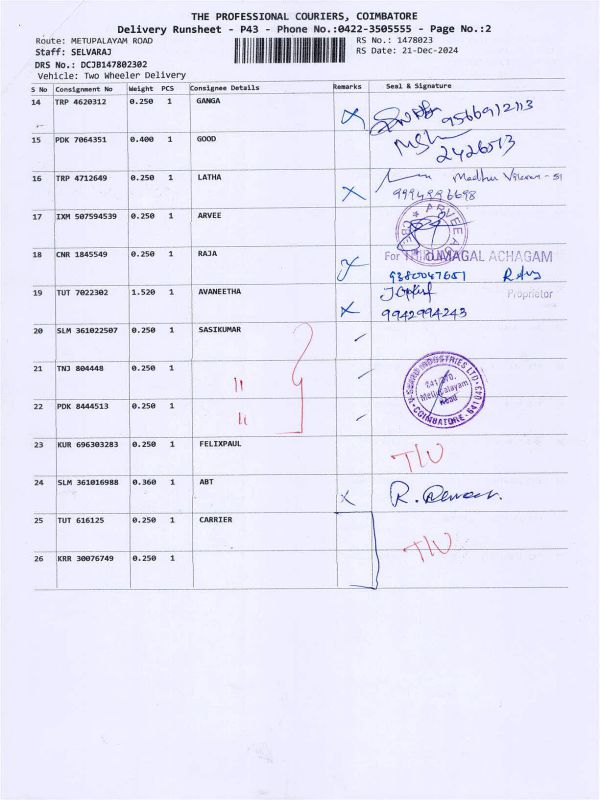 THE PROFESSIONAL COURIERS, COIMBATORE
Delivery Runsheet - P43 - Phone No.:0422-3505555 - Page No.:2
Route: METUPALAYAM ROAD RS No.: 1478023
Staff: SELVARAJ RS Date: 21-Dec-2024
DRS No.: DCJB147802302
Vehicle: Two Wheeler Delivery
S No Consignment No Weight PCS Consignee Details Remarks Seal & Signature
14 TRP 4620312 0.250 1 GANGA 9566912113
15 PDK 7064351 0.400 1 GOOD 2426513
16 TRP 4712649 0.250 1 LATHA X Madhu
9994996698
17 IXM 507594539 0.250 1 ARVEE
18 CNR 1845549 0.250 1 RAJA ACHAGAM
9380047651
19 TUT 7022302 1.520 1 AVANEETHA X Proprietor
9942994243
20 SLM 361022507 0.250 1 SASIKUMAR
21 TNJ 804448 0.250 1 "
22 PDK 8444513 0.250 1 "
INDUSTRIES LTD
Metupalayam
Road
COIMBATORE - 641 043
23 KUR 696303283 0.250 1 FELIXPAUL T/U
24 SLM 361016988 0.360 1 ABT X
25 TUT 616125 0.250 1 CARRIER T/U
26 KRR 30076749 0.250 1